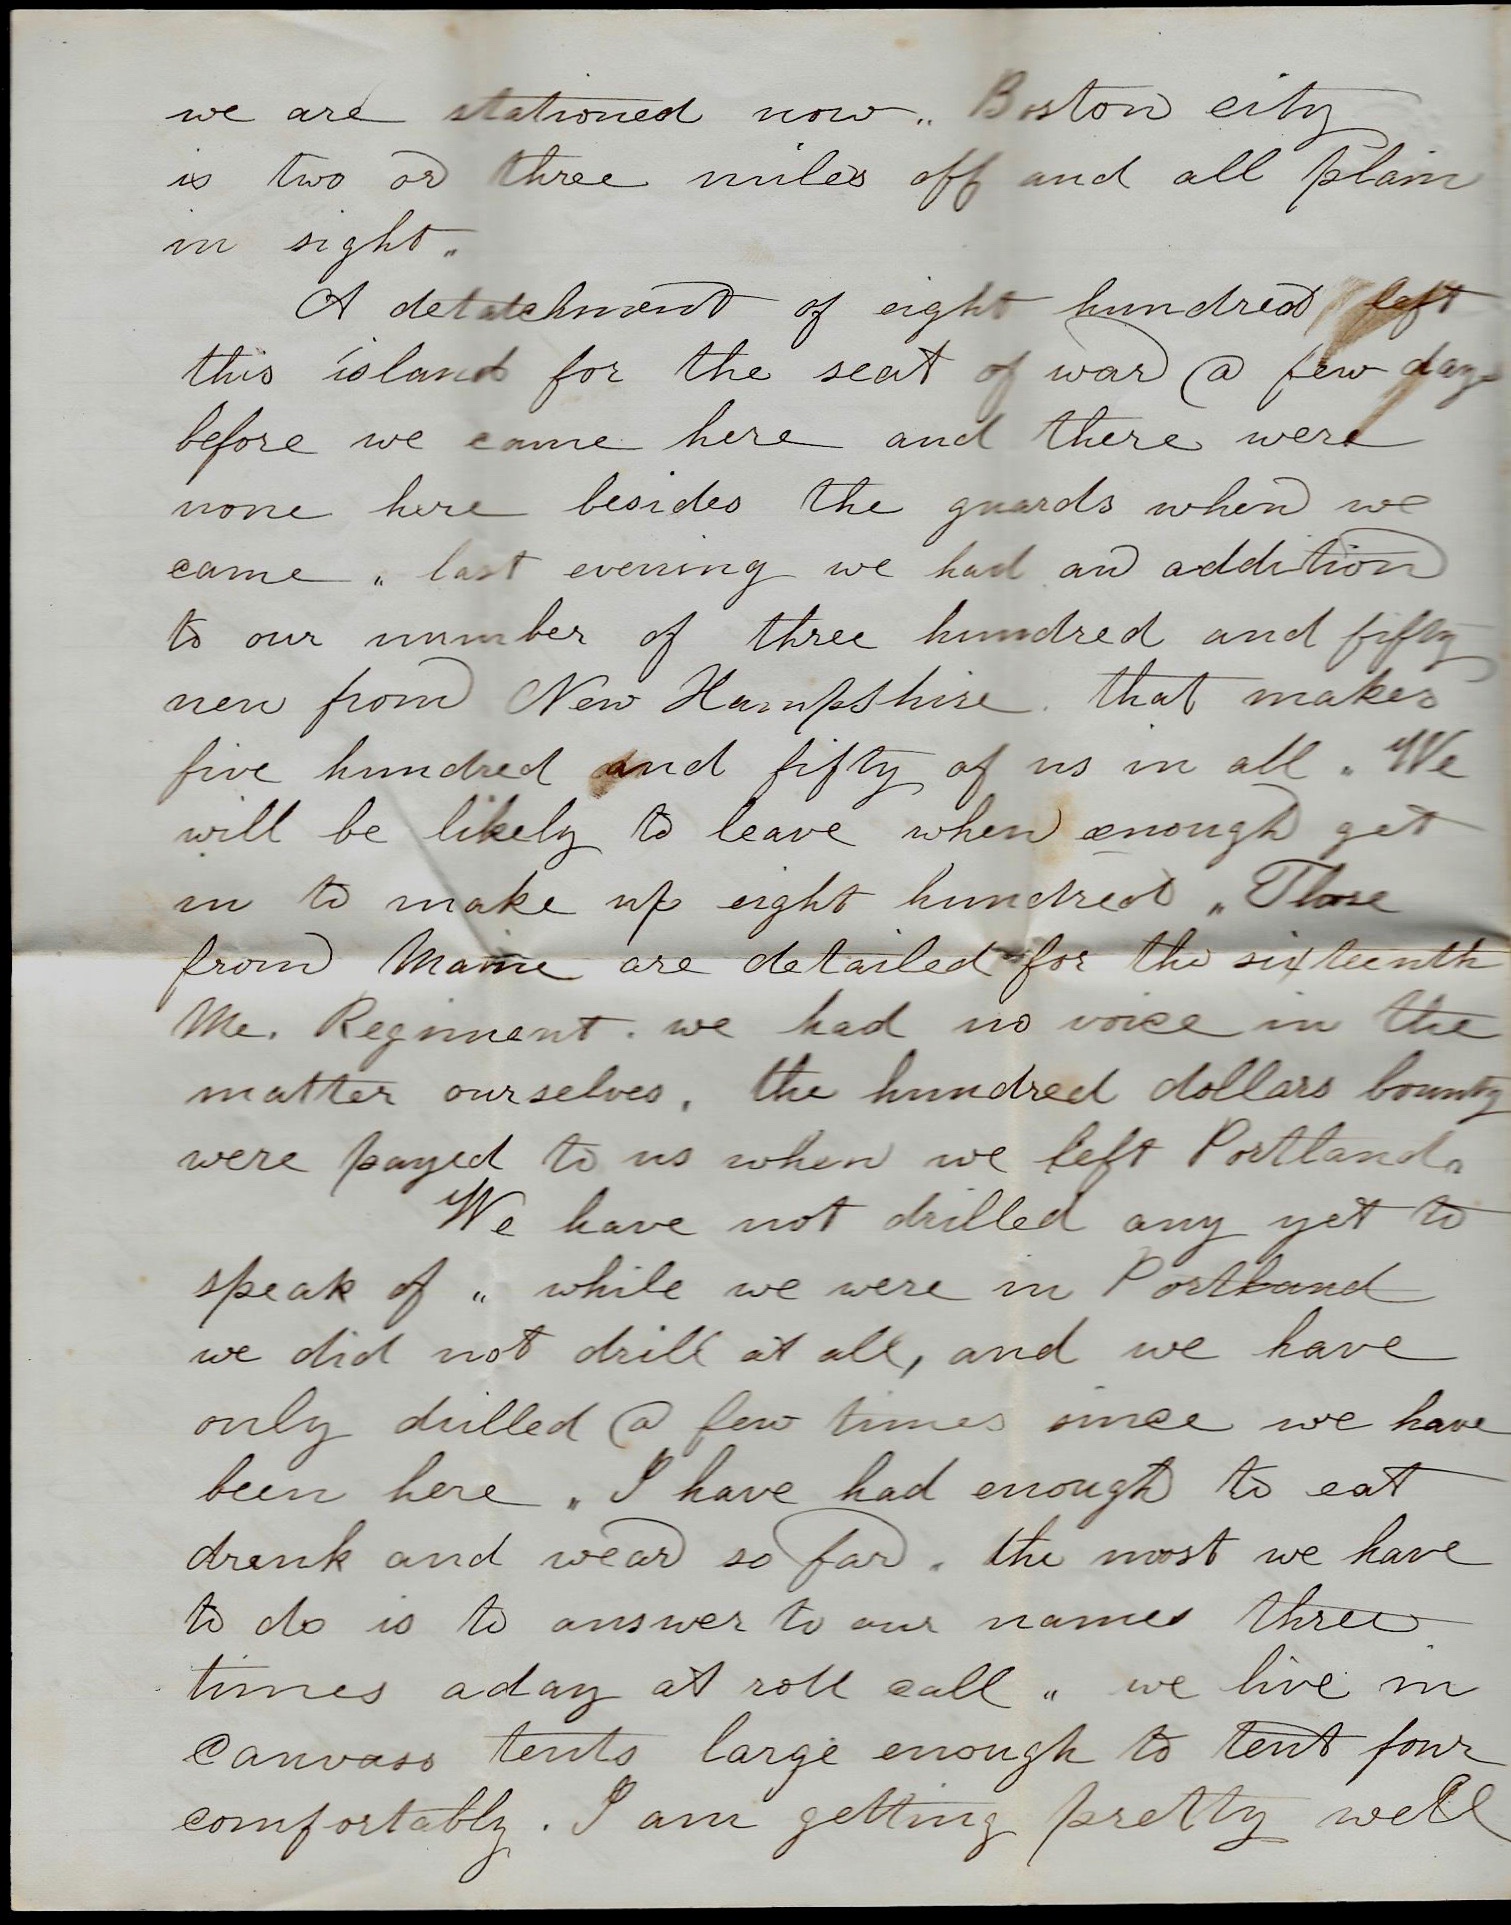 we are stationed now „ Boston city
is two or three miles off and all plain
in sight „
A detatchment of eight hundred left
this island for the seat of war a few days
before we came here and there were
none here besides the guards when we
came „ last evening we had an addition
to our number of three hundred and fifty
men from New Hampshire . that makes
five hundred and fifty of us in all „ We
will be likely to leave when enough get
in to make up eight hundred „ Those
from Maine are detailed for the sixteenth
Me. Regiment . we had no voice in the
matter ourselves . the hundred dollars bounty
were payed to us when we left Portland „
We have not drilled any yet to
speak of „ while we were in Portland
we did not drill at all, and we have
only drilled a few times since we have
been here „ I have had enough to eat
drink and wear so far . the most we have
to do is to answer to our names three
times aday at roll call „ we live in
canvass tents large enough to tent four
comfortably . I am getting pretty well